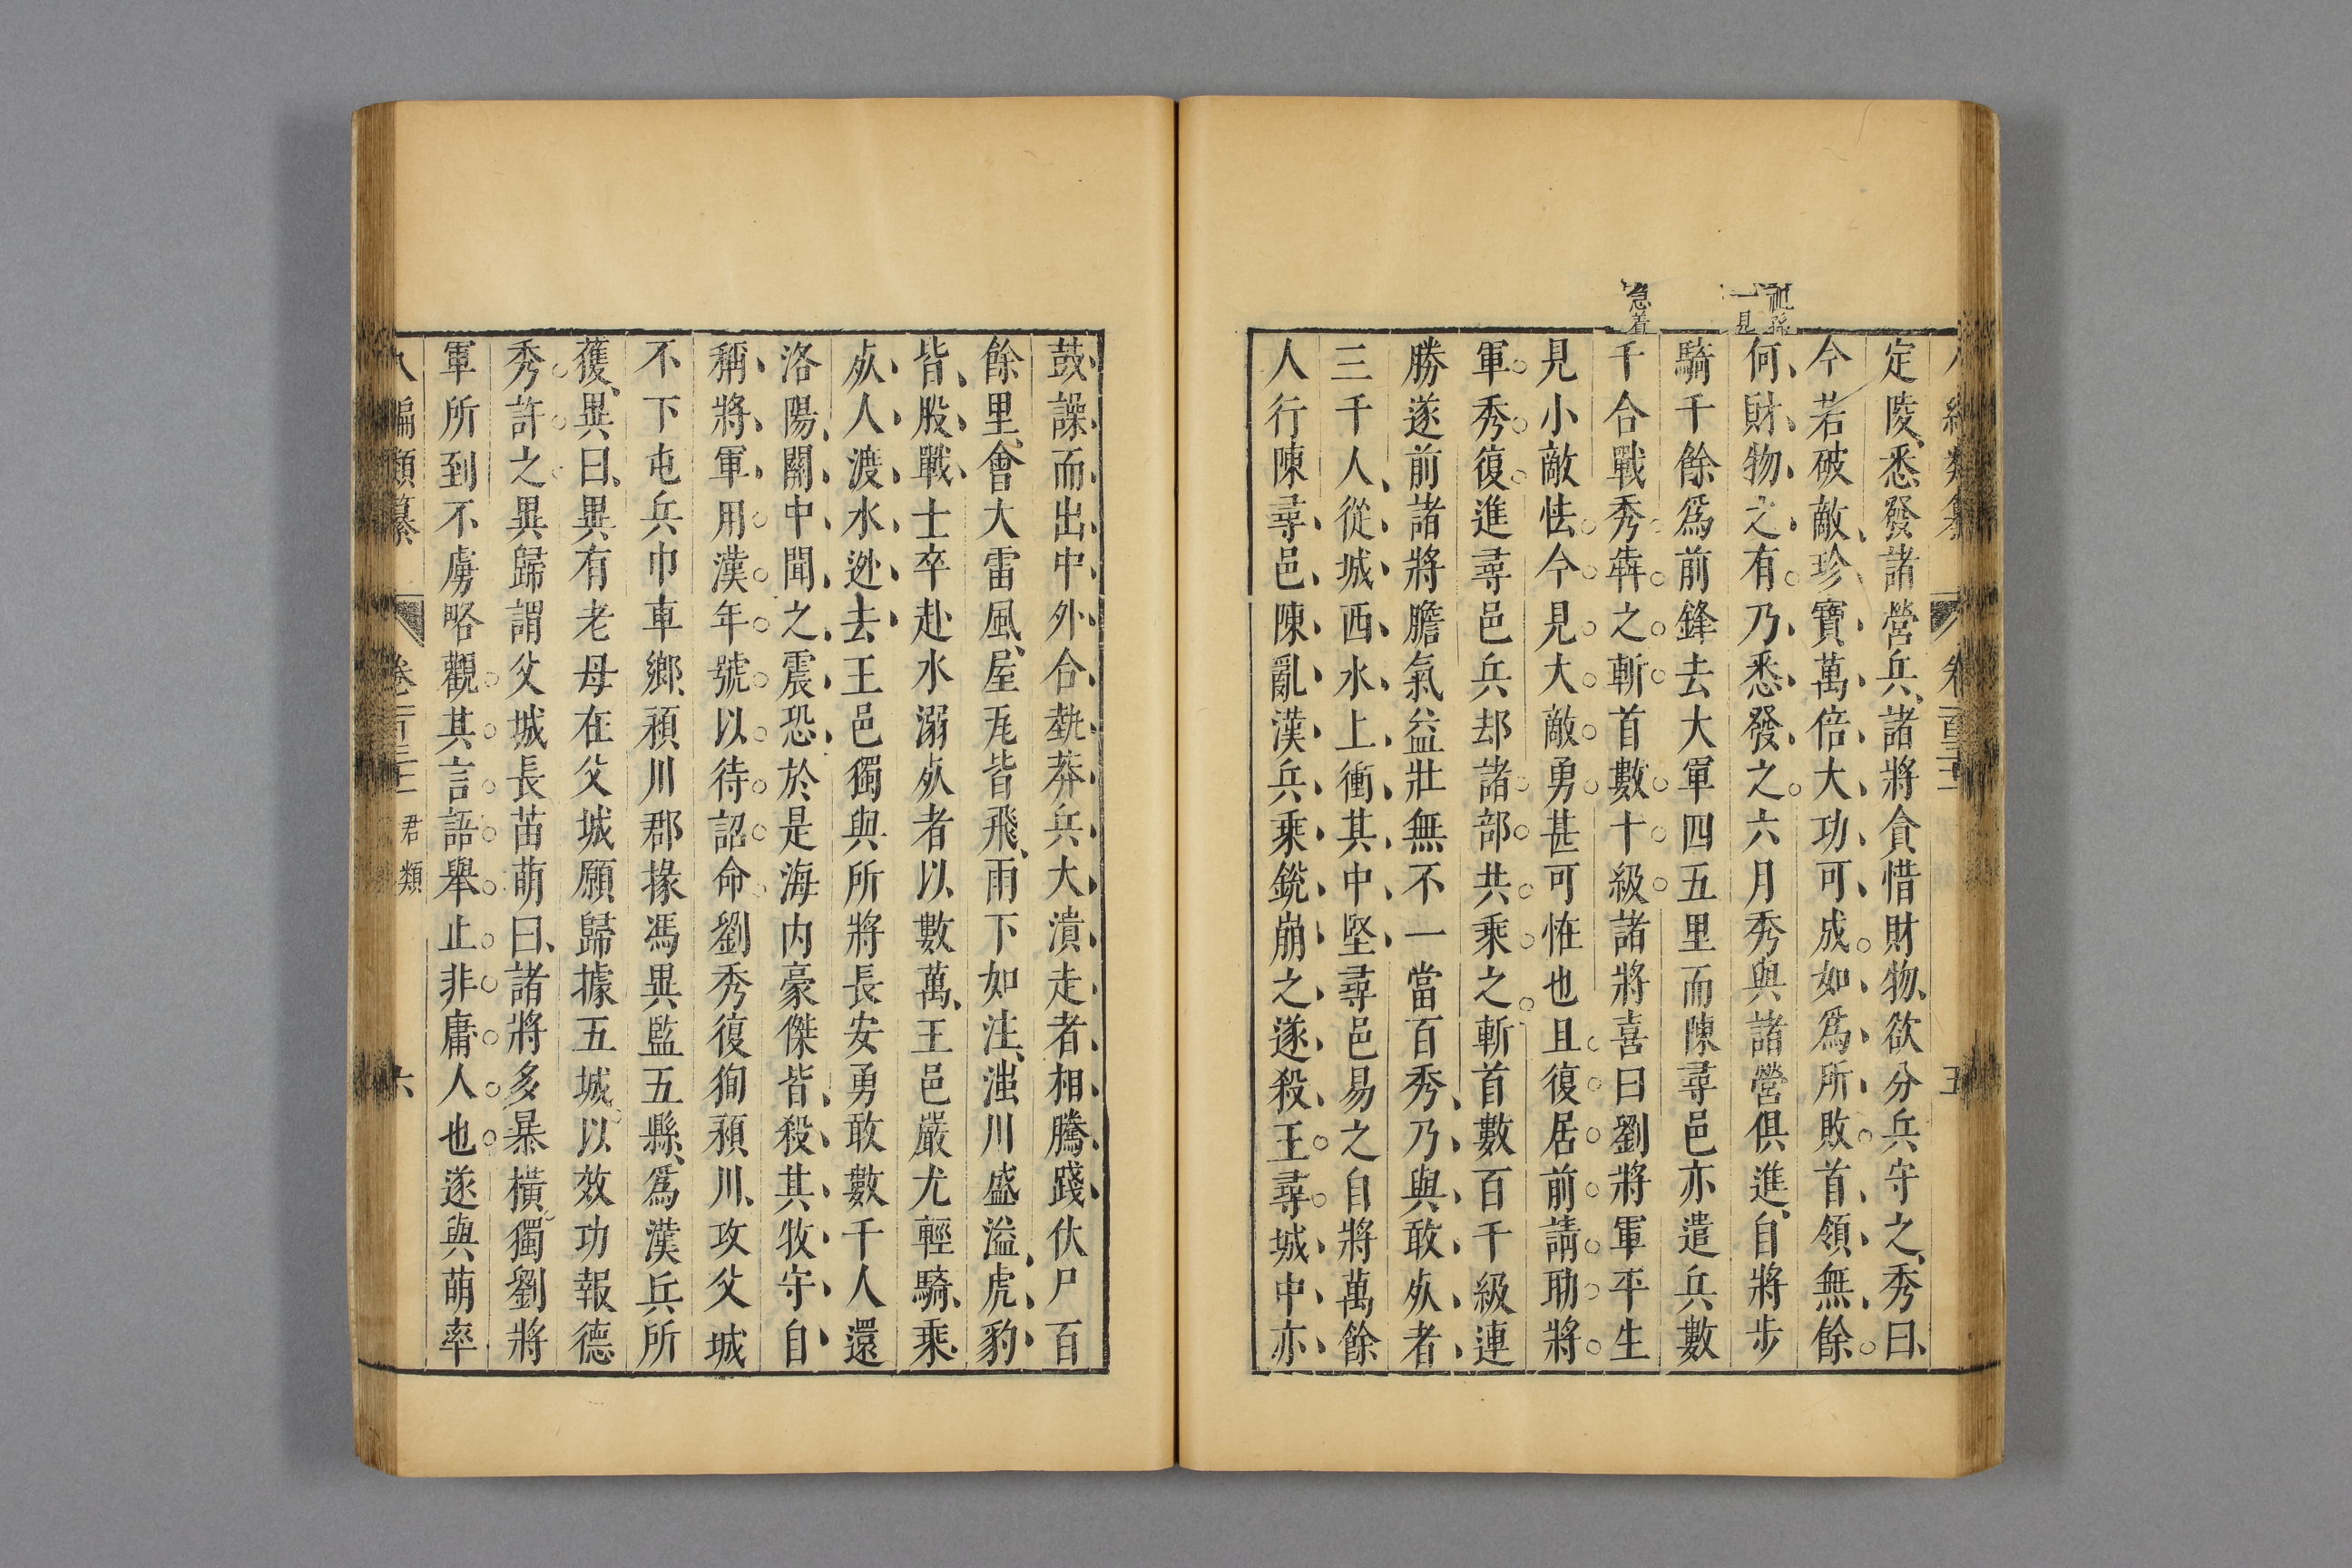 定陵悉發諸營兵諸將貪惜財物欲分兵守之秀曰
今若破敵珍寶萬倍大功可成如爲所敗首領無餘
何財物之有乃悉發之六月秀與諸營俱進自將步
騎千餘爲前鋒去大軍四五里而陳尋邑亦遣兵數
千合戰秀犇之斬首數十級諸將喜曰劉將軍平生
見小敵怯今見大敵勇甚可恠也且復居前請助將
軍秀復進尋邑兵却諸部共乘之斬首數百千級連
勝遂前諸將膽氣益壯無不一當百秀乃與敢㱙者
三千人從城西水上衝其中堅尋邑易之自將萬餘
人行陳尋邑陳亂漢兵乘銳崩之遂殺王尋城中亦
急着
一見
五
鼓譟而出中外合埶莽兵大潰走者相騰踐伏尸百
餘里會大雷風屋瓦皆飛雨下如注滍川盛溢虎豹
皆股戰士卒赴水溺㱙者以數萬王邑嚴尤輕騎乘
㱙人渡水逃去王邑獨與所將長安勇敢數千人還
洛陽關中聞之震恐於是海內豪傑皆殺其牧守自
稱將軍用漢年號以待詔命劉秀復徇潁川攻父城
不下屯兵巾車鄉潁川郡掾馮異監五縣爲漢兵所
獲異曰異有老母在父城願歸據五城以效功報德
秀許之異歸謂父城長苗萌曰諸將多暴橫獨劉將
軍所到不虜略觀其言語舉止非庸人也遂與萌率
八編類纂 卷一百三十二 君類 六